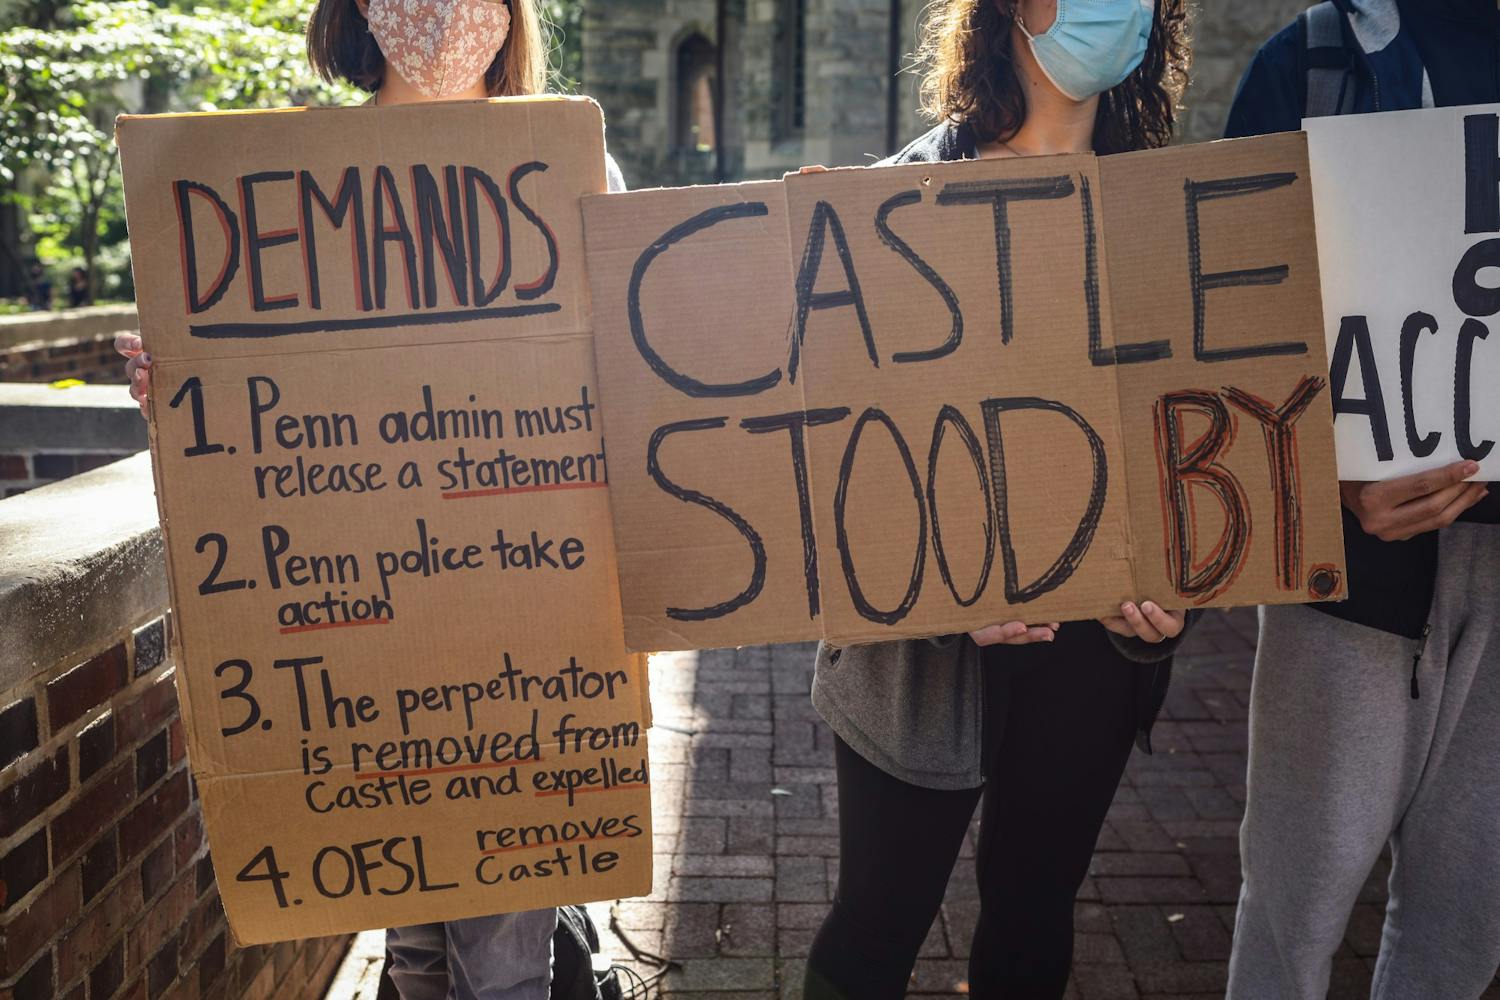 DEMANDS
1. Penn admin must
release a statement
2. Penn police take
action
3. The perpetrator
is removed from
Castle and expelled
4. OFSL removes
Castle
CASTLE
STOOD BY.
ACC